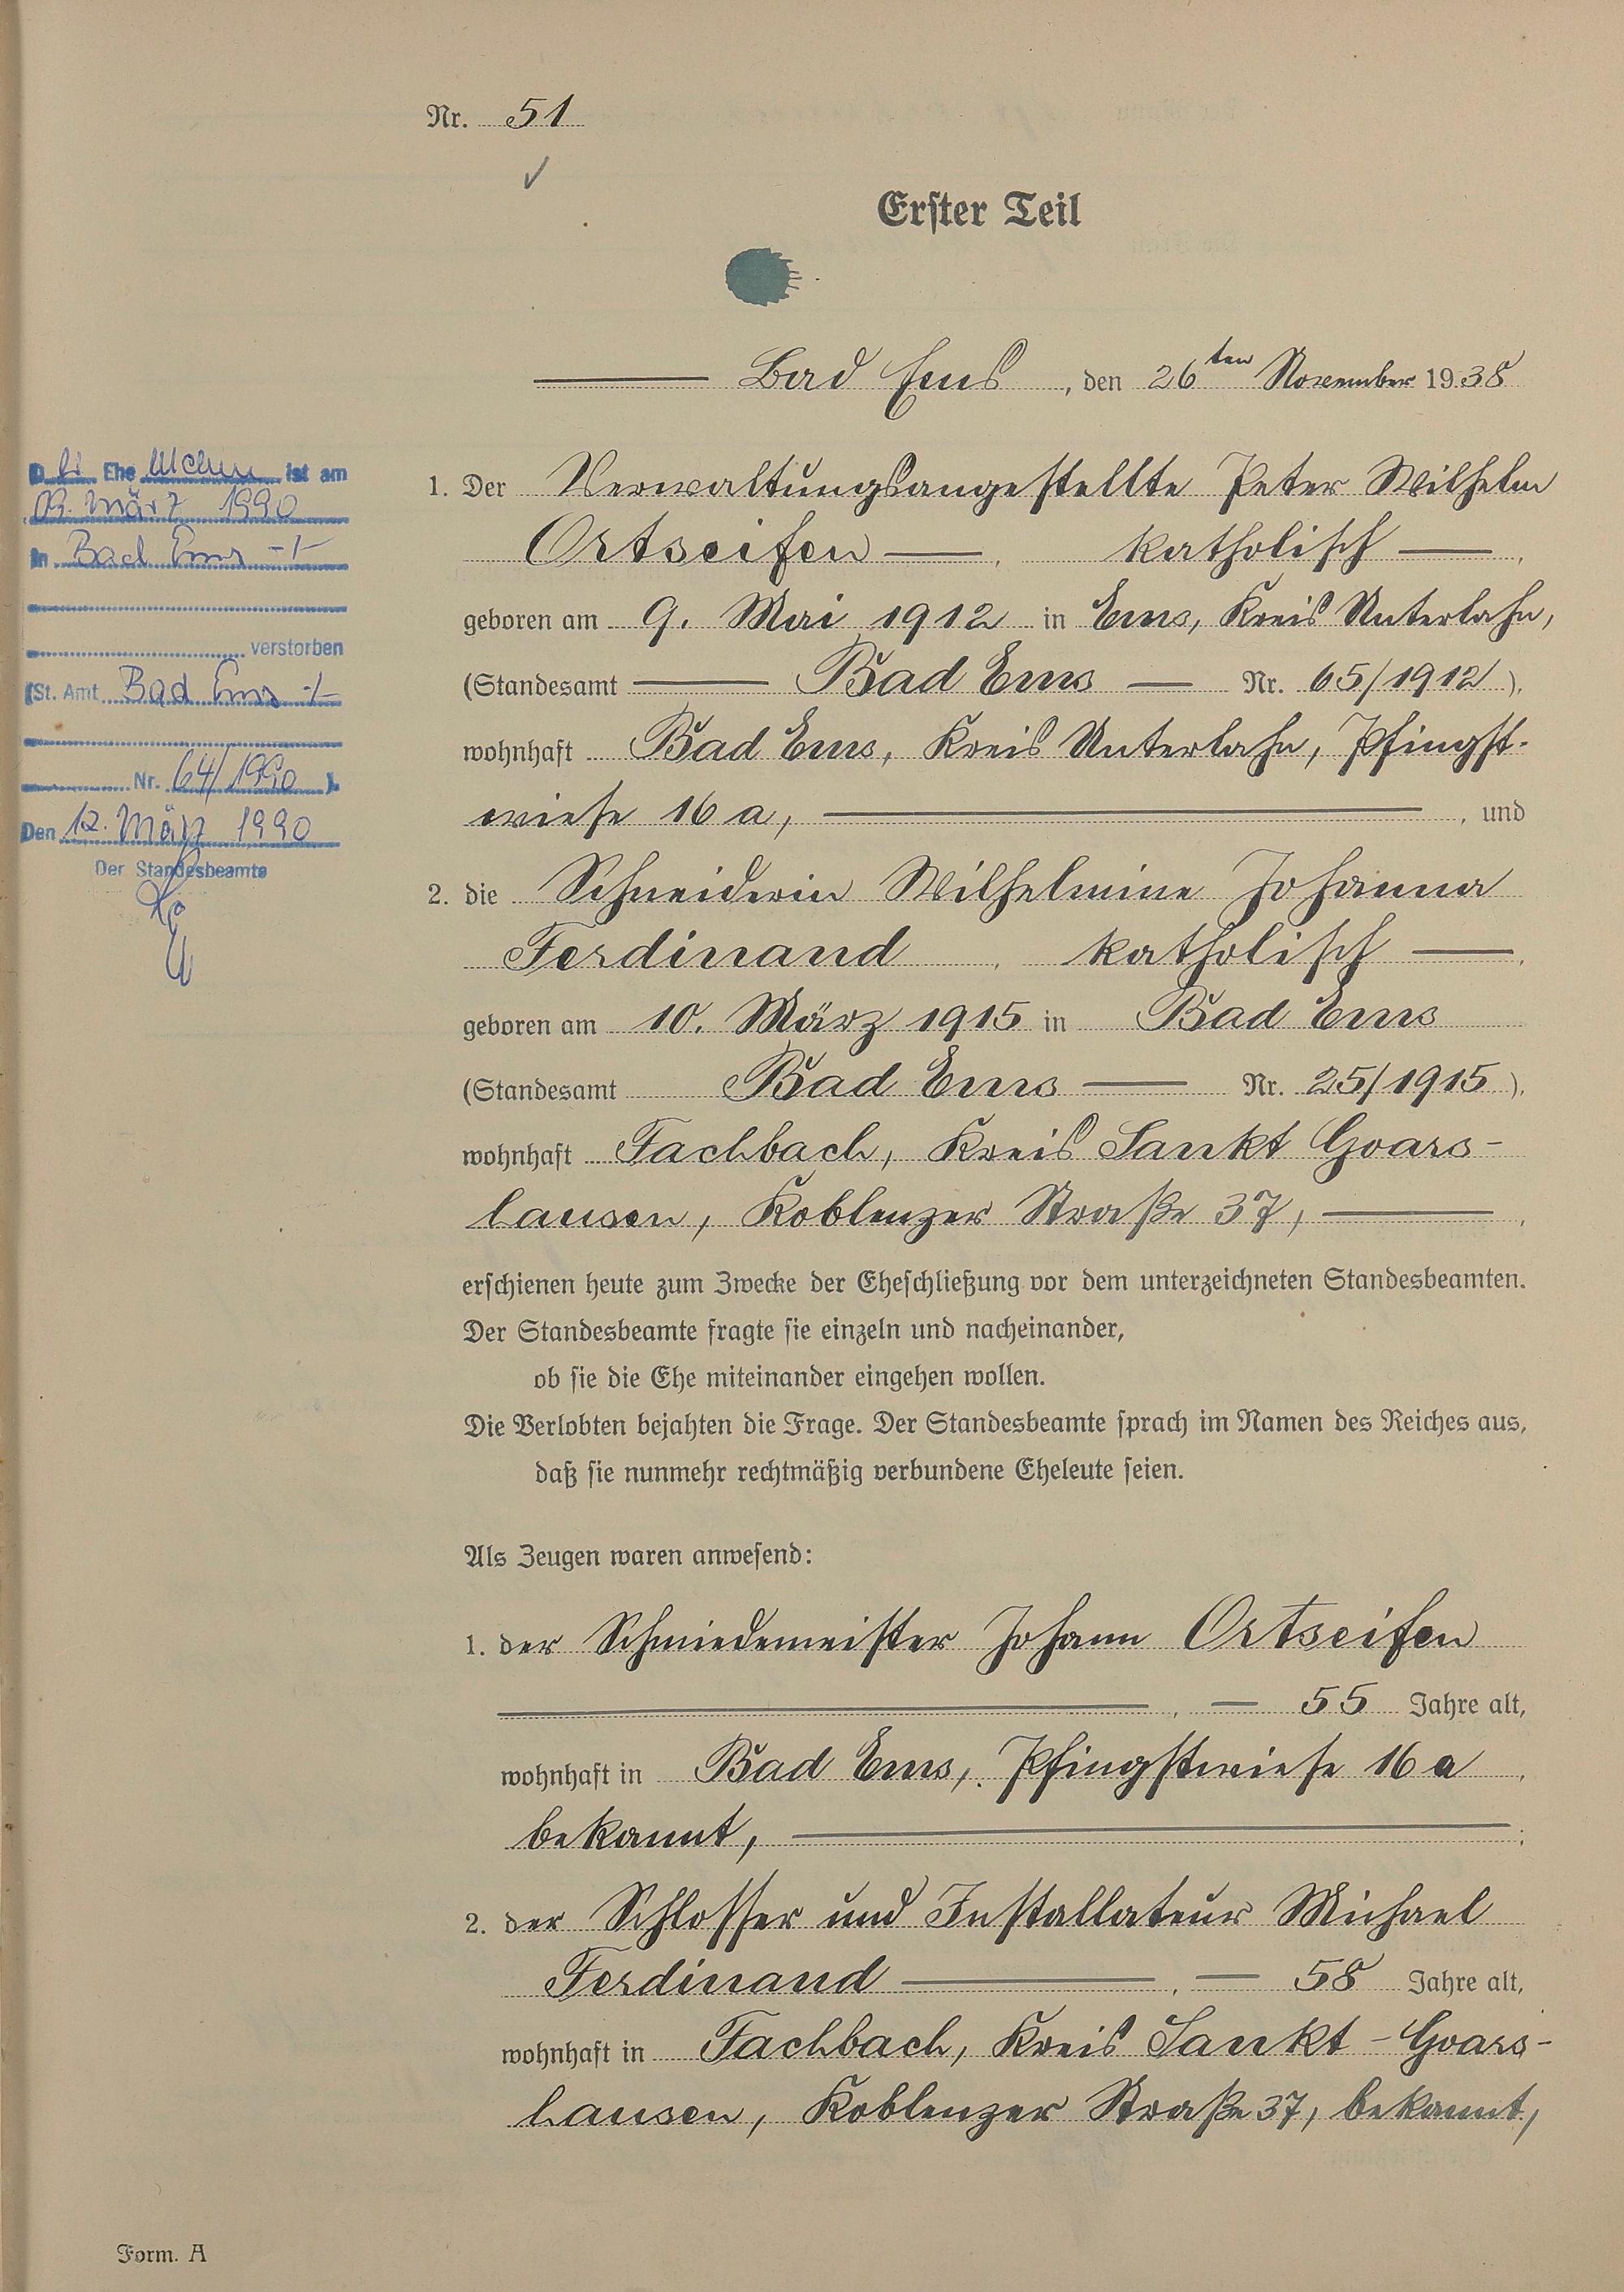 Nr. 51
Erster Teil
Bad Ems, den 26ten November 1938
1. Der Verwaltungsangestellte Peter Wilhelm
Ortseifen, katholisch,
geboren am 9. Mai 1912 in Ems, Kreis Unterlahn,
(Standesamt Bad Ems Nr. 65/1912),
wohnhaft Bad Ems, Kreis Unterlahn, Pfingst-
wiese 16 a, und
2. die Schneiderin Wilhelmine Johanna
Ferdinand, katholisch,
geboren am 10. März 1915 in Bad Ems
(Standesamt Bad Ems Nr. 25/1915),
wohnhaft Fachbach, Kreis Sankt Goars-
hausen, Koblenzer Straße 37,
erschienen heute zum Zwecke der Eheschließung vor dem unterzeichneten Standesbeamten.
Der Standesbeamte fragte sie einzeln und nacheinander,
ob sie die Ehe miteinander eingehen wollen.
Die Verlobten bejahten die Frage. Der Standesbeamte sprach im Namen des Reiches aus,
daß sie nunmehr rechtmäßig verbundene Eheleute seien.
Als Zeugen waren anwesend:
1. der Schmiedemeister Johann Ortseifen
, 55 Jahre alt,
wohnhaft in Bad Ems, Pfingstwiese 16 a,
bekannt, ;
2. der Schlosser und Installateur Michael
Ferdinand, 58 Jahre alt,
wohnhaft in Fachbach, Kreis Sankt-Goars-
hausen, Koblenzer Straße 37, bekannt,
Form. A
D Ehe ist am
09. März 1990
in Bad Ems -/-
verstorben
(St. Amt Bad Ems -/-
Nr. 64/1990 ).
Den 12. März 1990
Der Standesbeamte